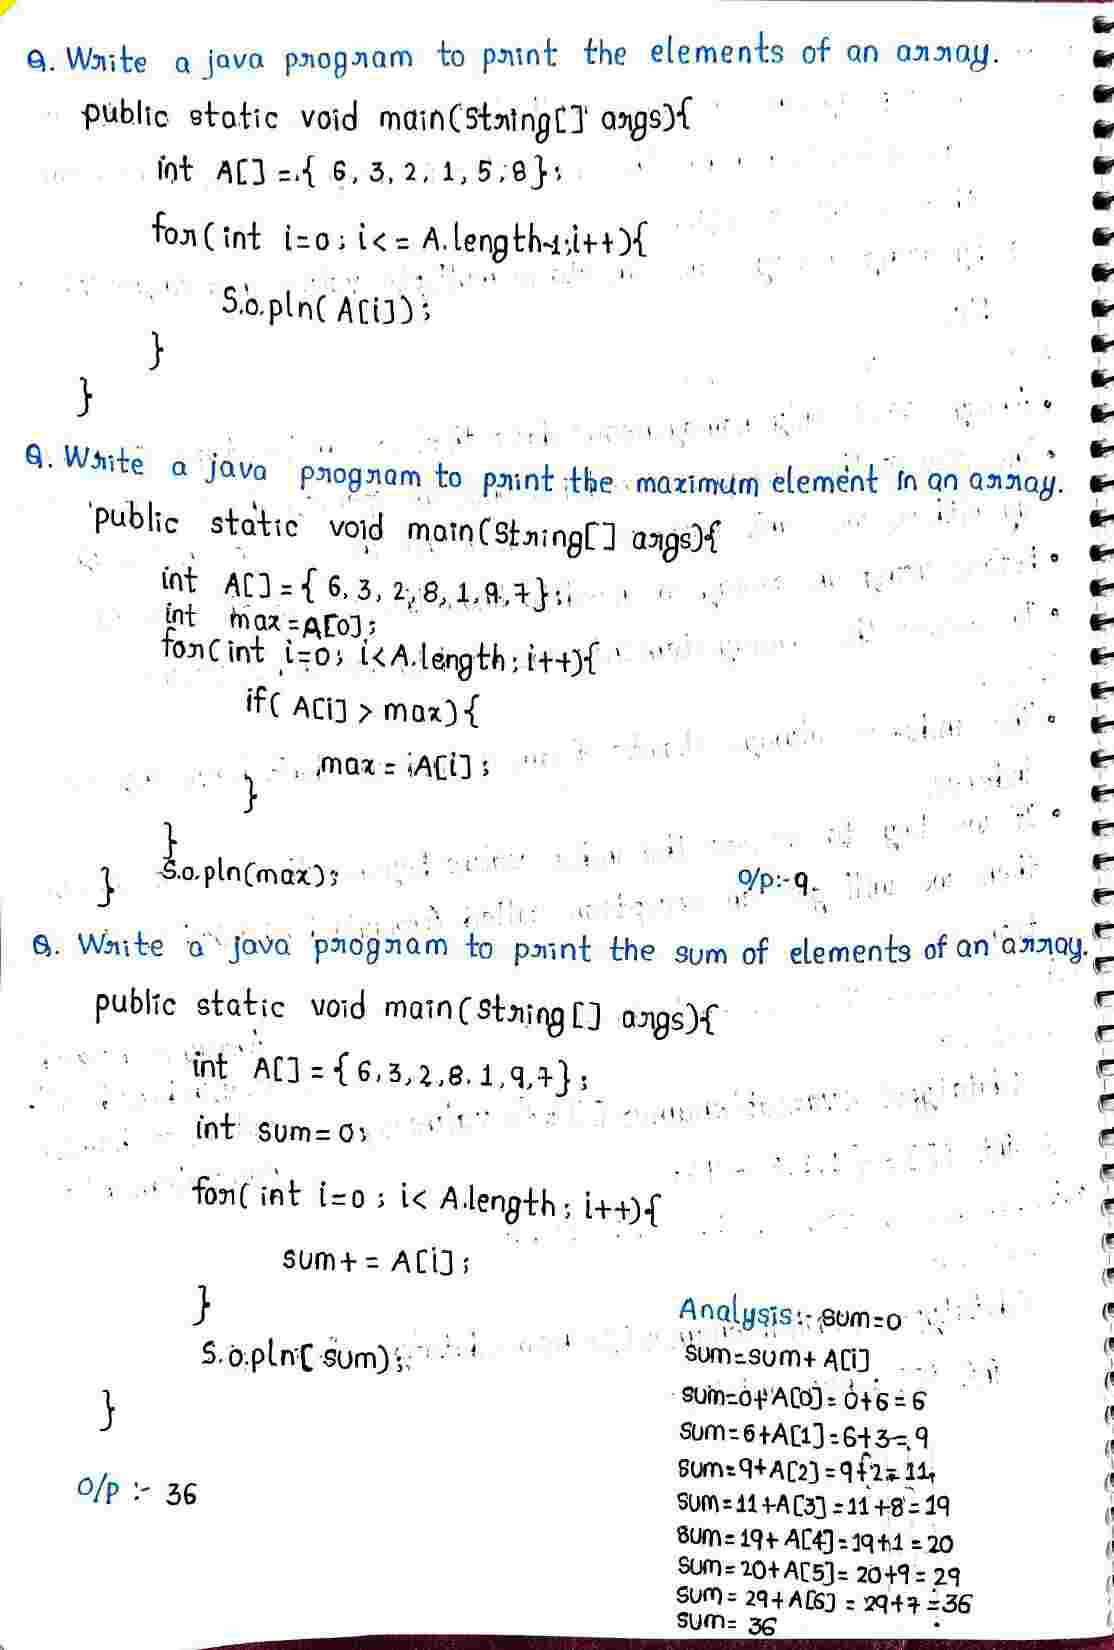 Q. Write a java program to print the elements of an array.
public static void main(String[] args){
int A[] = { 6, 3, 2, 1, 5, 8 };
for(int i=0; i<= A.length-1;i++){
S.o.pln( A[i]);
}
}
Q. Write a java program to print the maximum element in an array.
public static void main(String[] args){
int A[] = { 6, 3, 2, 8, 1, 9, 7 };
int max = A[0];
for(int i=0; i<A.length; i++){
if( A[i] > max){
max = A[i];
}
}
S.o.pln(max);
}
O/p:- 9.
Q. Write a java program to print the sum of elements of an array.
public static void main(String[] args){
int A[] = { 6, 3, 2, 8. 1, 9, 7 };
int sum= 0;
for( int i=0 ; i< A.length; i++){
sum+ = A[i];
}
S.o.pln[ sum);
}
O/P :- 36
Analysis:- sum=0
sum=sum+ A[i]
sum=0+A[0]= 0+6=6
sum=6+A[1]=6+3=9
sum=9+A[2]=9+2=11
sum=11+A[3]=11+8=19
sum=19+A[4]=19+1=20
sum=20+A[5]= 20+9=29
sum= 29+A[6] = 29+7=36
sum= 36